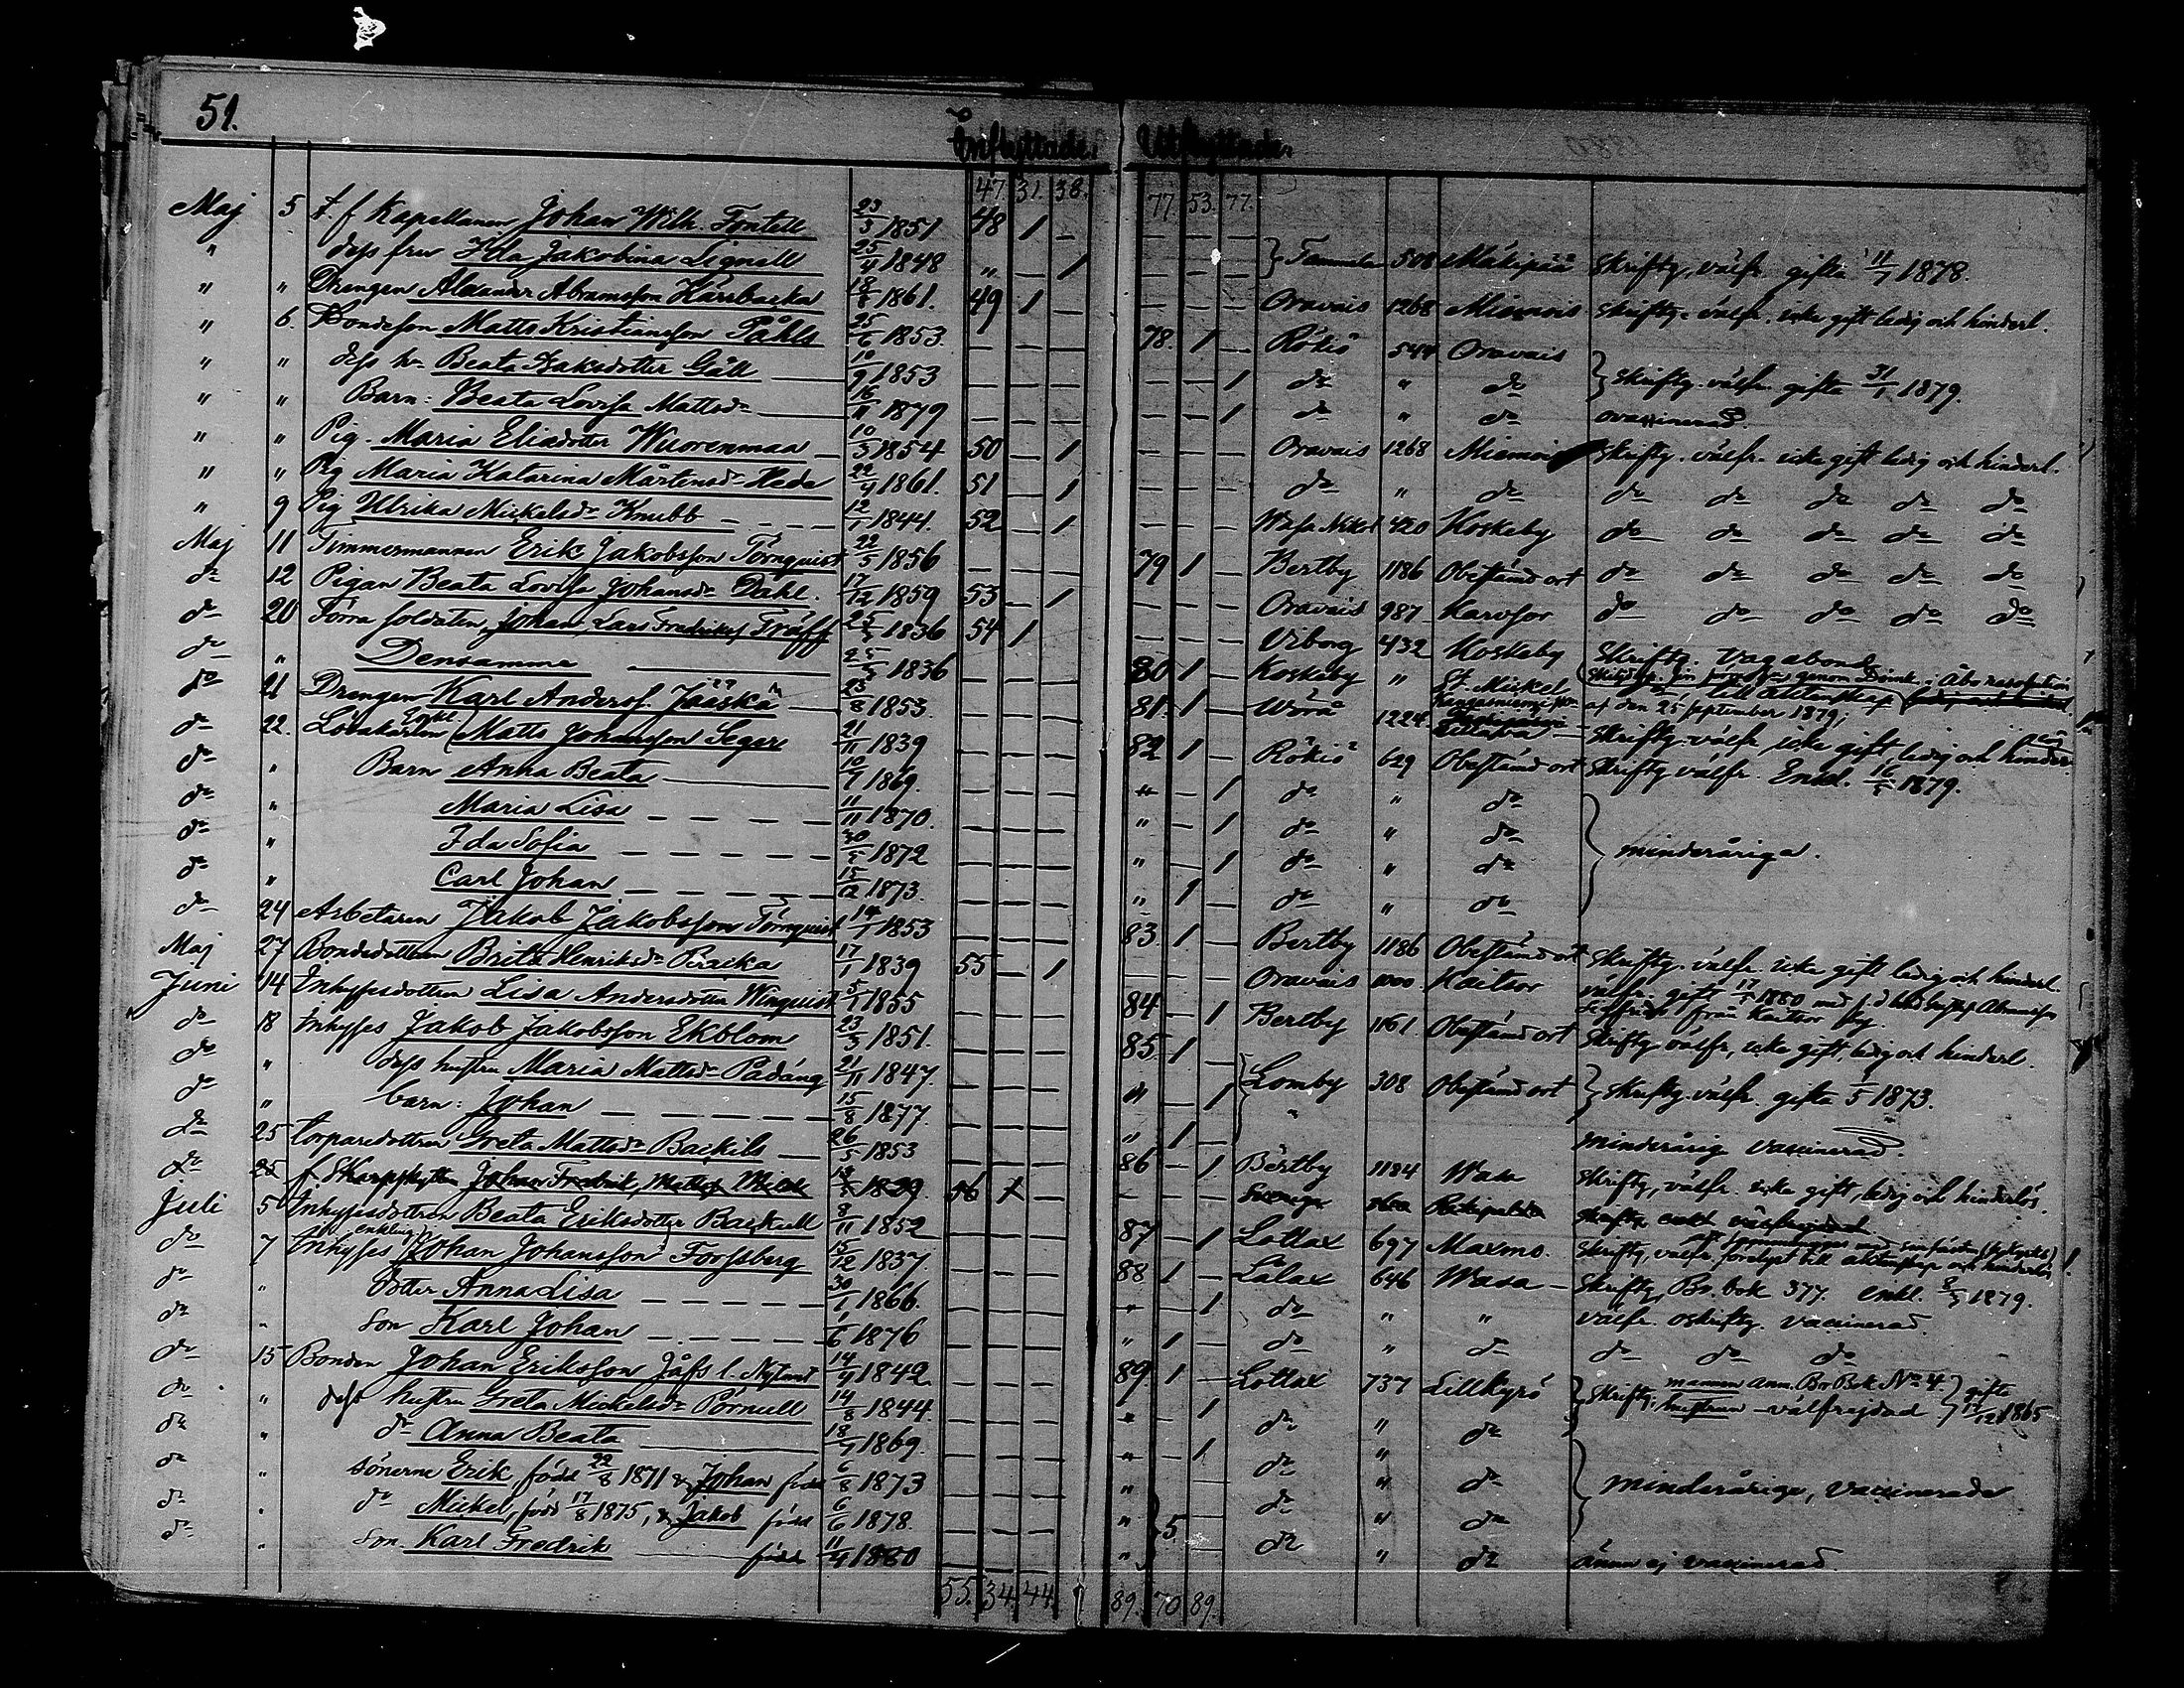 51.
Inflyttade. Utflyttade.
47. 31. 38. 77. 53. 77.
Maj 5 t. f. Kapellanen Johan Wilh. Fontell 23/3 1851 48 1 — — — —
" dess fru Ida Jakobina Lignell 25/4 1848 " — 1 — — — 508 Skriftg. välfr. gifta 11/7 1878.
" " Drengen Alexander Abramsson Kärrbacka 1861. 49 1 — — — — Oravais 1268 skriftg. välfr. icke gift ledig och hinderl.
" 6. Bondeson Matts Kristiansson Påhls 25/6 1853. — — — 78. 1 — Rökiö 544 Oravais
" " dess h. Beata Isaksdotter Gåll 10/9 1853 — — — — — 1 do " do skriftg. välfr. gifta 31/1 1879.
" " Barn: Beata Lovisa Mattsdr 16/11 1879 — — — — — 1 do " do ovaccinerad.
" " Pig. Maria Eliedotter Wuorenmaa 10/3 1854 50 — 1 — — — Oravais 1268 skriftg. välfr. icke gift ledig och hinderl.
" " Pig Maria Katarina Mårtensdr Heda 1861. 51 — 1 — — — do " do do do do do do
" 9 Pig Ulrika Mickelsdr Knubb 12/1 1844. 52 — 1 — — — Wasa Nikol 420 Koskeby do do do do do
Maj 11 Timmermannen Erik Jakobsson Törnquist 22/5 1856 — — — 79 1 — Bertby 1186 Obestämd ort do do do do do
do 12 Pigan Beata Lovisa Johansdr Dahl. 17/12 1859 53 — 1 — — — Oravais 987 Karvsor do do do do do
do 20 Förra soldaten Johan Lars Fredriks. Träff 1836 54 1 — — — — Viborg 432 Koskeby Skriftg. Vagabond
do " Densamme 1836 — — — 80 1 — Koskeby " St. Mickel genom Åbo resolution af den 25 september 1879;
do 21 Drengen Karl Anders. Jääskä 23/8 1853. — — — 81. 1 — Wörå 1224 skriftg. välfr. icke gift ledig och hinder.
do 22. Lösekarlen Enkl. Matts Johansson Segers 21/11 1839 — — — 82 1 — Rökiö 629 Obestämd ort skriftg. välfr. Enkl. 1879.
do " Barn Anna Beata 10/7 1869. — — — " — 1 do " do
do " Maria Lisa 11/11 1870. — — — " — 1 do " do
do " Ida Sofia 1872 — — — " — 1 do " do minderåriga.
do " Carl Johan 15/12 1873. — — — " 1 do " do
do 24 Arbetaren Jakob Jakobsson Törnquist 1853 — — — 83. 1 — Bertby 1186 Obestämd ort skriftg. välfr. icke gift ledig och hinderl.
Maj 27 Bondedottren Brita Henriksdr Pracka 17/1 1839 55 — 1 — — — Oravais 1000 Kaitsor välfr. gift 1880 med från Kaitsor by.
Juni 14 Inhysesdottren Lisa Andersdotter Winquist 5/1 1855 — — — 84 — 1 Bertby 1161 Obestämd ort skriftg. välfr., icke gift, ledig och hinderl.
do 18 Inhyses Jakob Jakobsson Ekblom 23/3 1851. — — — 85. 1 — Lomby 308 Obestämd ort
do " dess hustru Maria Mattsdr Padång 21/11 1847. — — — " — 1 skriftg. välfr. gifta 1/5 1873.
do " barn: Johan 15/8 1877. — — — " 1 — minderårig vaccinerad.
do 25 torparedottren Greta Mattsdr Backils 26/5 1853 — — — 86 — 1 Bertby 1184 Wasa skriftg., välfr. icke gift, ledig och hinderlös.
do 25 f Skarpskytten Johan Fredrik Matts. 1839. 56 1 — — — — Sverige
Juli 5 Inhysesdottren Beata Eriksdotter Backull 8/11 1852 — — — 87 — 1 Lotlax 697 Maxmo. skriftg., välfr. förelyst till äktenskap och hinderlös
do 7 Inhyses enkling Johan Johansson Forssberg 15/12 1837. — — — 88 1 — Lålax 646 Wasa skriftg. Br. bok 377. enkl. 1879.
do " dotter Anna Lisa 30/1 1866. — — — " — 1 do " " välfr. oskriftg. vaccinerad.
do " Son Karl Johan 1/6 1876 — — — " 1 — do " do do do do
do 15 Bonden Johan Eriksson Jåfs l. Nytand 14/4 1842. — — — 89. 1 — Lotlax 737 Lillkyrö skriftg. mannen ann. Br Bok No 4. gifta
do " dess hustru Greta Mickelsdr Pörnull 14/8 1844. — — — " — 1 do " do hustrun välfrejdad 1865
do " dr Anna Beata 18/7 1869. — — — " — 1 do " do
do " sönerne Erik född 22/8 1871 & Johan född 6/8 1873 — — — " do " do minderåriga, vaccinerade
do " do Mickel, född 17/8 1875, & Jakob född 6/6 1878. — — — " 5 — do " do
do " Son Karl Fredrik född 11/4 1880 — — — " do " do ännu ej vaccinerad.
55. 34. 44. 89. 70 89.